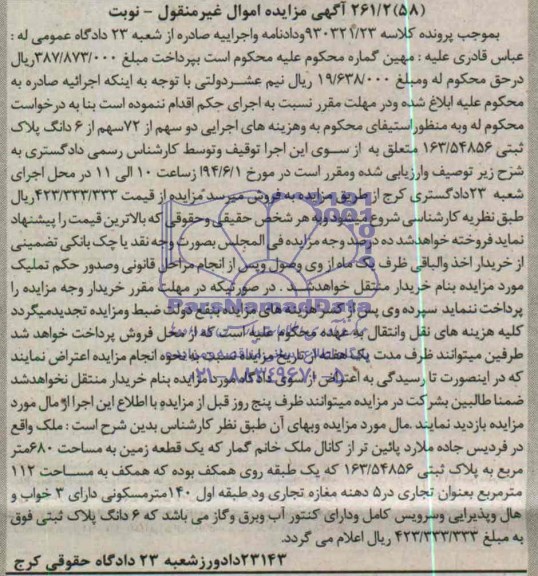 ۲۶۱/۲(۵۸) آگهی مزایده اموال غیرمنقول - نوبت
بموجب پرونده کلاسه ۹۳۰۳۲۱/۲۳ودادنامه واجراییه صادره از شعبه ۲۳ دادگاه عمومی له :
عباس قادری علیه : مهین گماره محکوم علیه محکوم است بپرداخت مبلغ ۳۸۷/۸۷۳/۰۰۰ریال
درحق محکوم له ومبلغ ۱۹/۶۳۸/۰۰۰ ریال نیم عشردولتی با توجه به اینکه اجرائیه صادره به
محکوم علیه ابلاغ شده ودر مهلت مقرر نسبت به اجرای حکم اقدام ننموده است بنا به درخواست
محکوم له وبه منظوراستیفای محکوم به وهزینه های اجرایی دو سهم از ۷۲سهم از ۶ دانگ پلاک
ثبتی ۱۶۳/۵۴۸۵۶ متعلق به از سوی این اجرا توقیف وتوسط کارشناس رسمی دادگستری به
شرح زیر توصیف وارزیابی شده ومقرر است در مورخ ۹۴/۶/۱ ازساعت ۱۰ الی ۱۱ در محل اجرای
شعبه ۲۳دادگستری کرج از طریق مزایده به فروش میرسد مزایده از قیمت ۴۲۳/۳۳۳/۳۳۳ریال
طبق نظریه کارشناسی شروع میشود وبه هر شخص حقیقی وحقوقی که بالاترین قیمت را پیشنهاد
نماید فروخته خواهدشد ده درصد وجه مزایده فی المجلس بصورت وجه نقد یا چک بانکی تضمینی
از خریدار اخذ والباقی ظرف یک ماه از وی وصول وپس از انجام مراحل قانونی وصدور حکم تملیک
مورد مزایده بنام خریدار منتقل خواهدشد . در صورتیکه در مهلت مقرر خریدار وجه مزایده را
پرداخت ننماید سپرده وی پس از کسر هزینه های مزایده بنفع دولت ضبط ومزایده تجدیدمیگردد
کلیه هزینه های نقل وانتقال به عهده محکوم علیه است که از محل فروش پرداخت خواهد شد
طرفین میتوانند ظرف مدت یک هفته از تاریخ مزایده نسبت به نحوه انجام مزایده اعتراض نمایند
که در اینصورت تا رسیدگی به اعتراض از سوی دادگاه مورد مزایده بنام خریدار منتقل نخواهدشد
ضمنا طالبین بشرکت در مزایده میتوانند ظرف پنج روز قبل از مزایده با اطلاع این اجرا از مال مورد
مزایده بازدید نمایند .مال مورد مزایده وبهای آن طبق نظر کارشناس بدین شرح است : ملک واقع
در فردیس جاده ملارد پائین تر از کانال ملک خانم گمار که یک قطعه زمین به مساحت ۶۸۰متر
مربع به پلاک ثبتی ۱۶۳/۵۴۸۵۶ که یک طبقه روی همکف بوده که همکف به مساحت ۱۱۲
مترمربع بعنوان تجاری در۵ دهنه مغازه تجاری ود طبقه اول ۱۴۰مترمسکونی دارای ۳ خواب و
هال وپذیرایی وسرویس کامل ودارای کنتور آب وبرق وگاز می باشد که ۶ دانگ پلاک ثبتی فوق
به مبلغ ۴۲۳/۳۳۳/۳۳۳ ریال اعلام می گردد.
۲۳۱۴۳دادورزشعبه ۲۳ دادگاه حقوقی کرج
ParsNamadData
۰۲۱-۸۸۳۴۹۶۷۰-۵